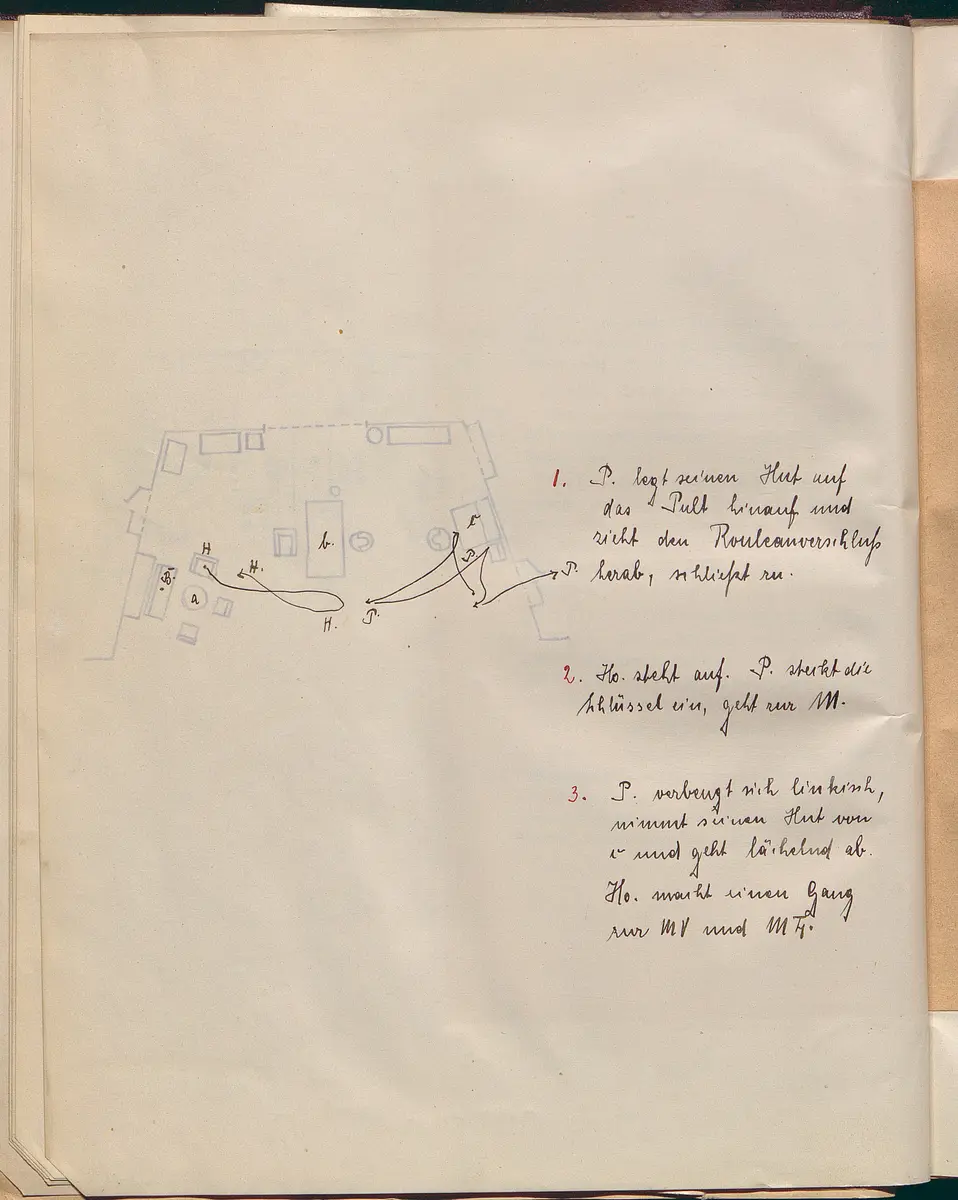 H
H.
B.
a
H.
b.
c
P.
P.
P.
1. P. legt seinen Hut auf
das Pult hinauf und
zieht den Rouleauverschluß
herab, schließt zu.
2. Ho. steht auf. P. steckt die
Schlüssel ein, geht zur M.
3. P. verbeugt sich linkisch,
nimmt seinen Hut von
c und geht lächelnd ab.
Ho. macht einen Gang
zur MV und M